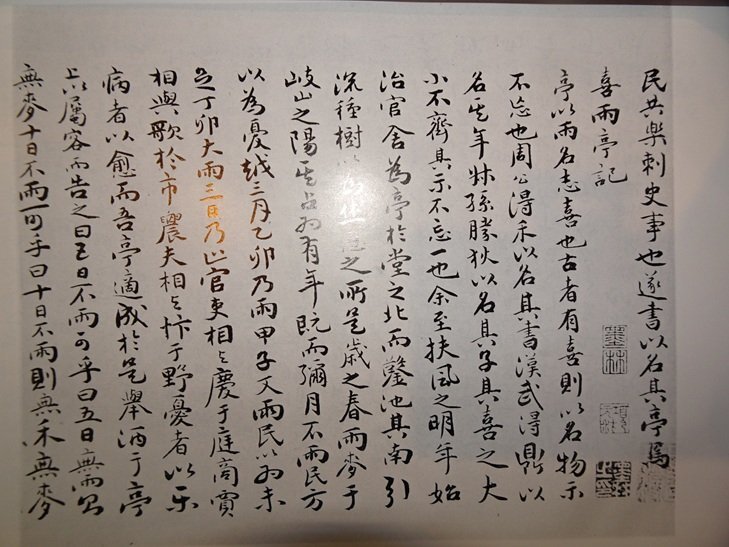 民共樂刺史事也遂書以名其亭焉
喜雨亭記
亭以雨名志喜也古者有喜則以名物示
不忘也周公得禾以名其書漢武得鼎以
名其年叔孫勝狄以名其子其喜之大
小不齊其示不忘一也余至扶風之明年始
治官舍為亭於堂之北而鑿池其南引
流種樹以為休息之所是歲之春雨麥于
岐山之陽其占為有年既而彌月不雨民方
以為憂越三月乙卯乃雨甲子又雨民以為未
足丁卯大雨三日乃止官吏相與慶于庭商賈
相與歌於市農夫相與忭于野憂者以樂
病者以愈而吾亭適成於是舉酒于亭
上以屬客而告之曰五日不雨可乎曰五日無雨則
無麥十日不雨可乎曰十日不雨則無禾無麥
墨林